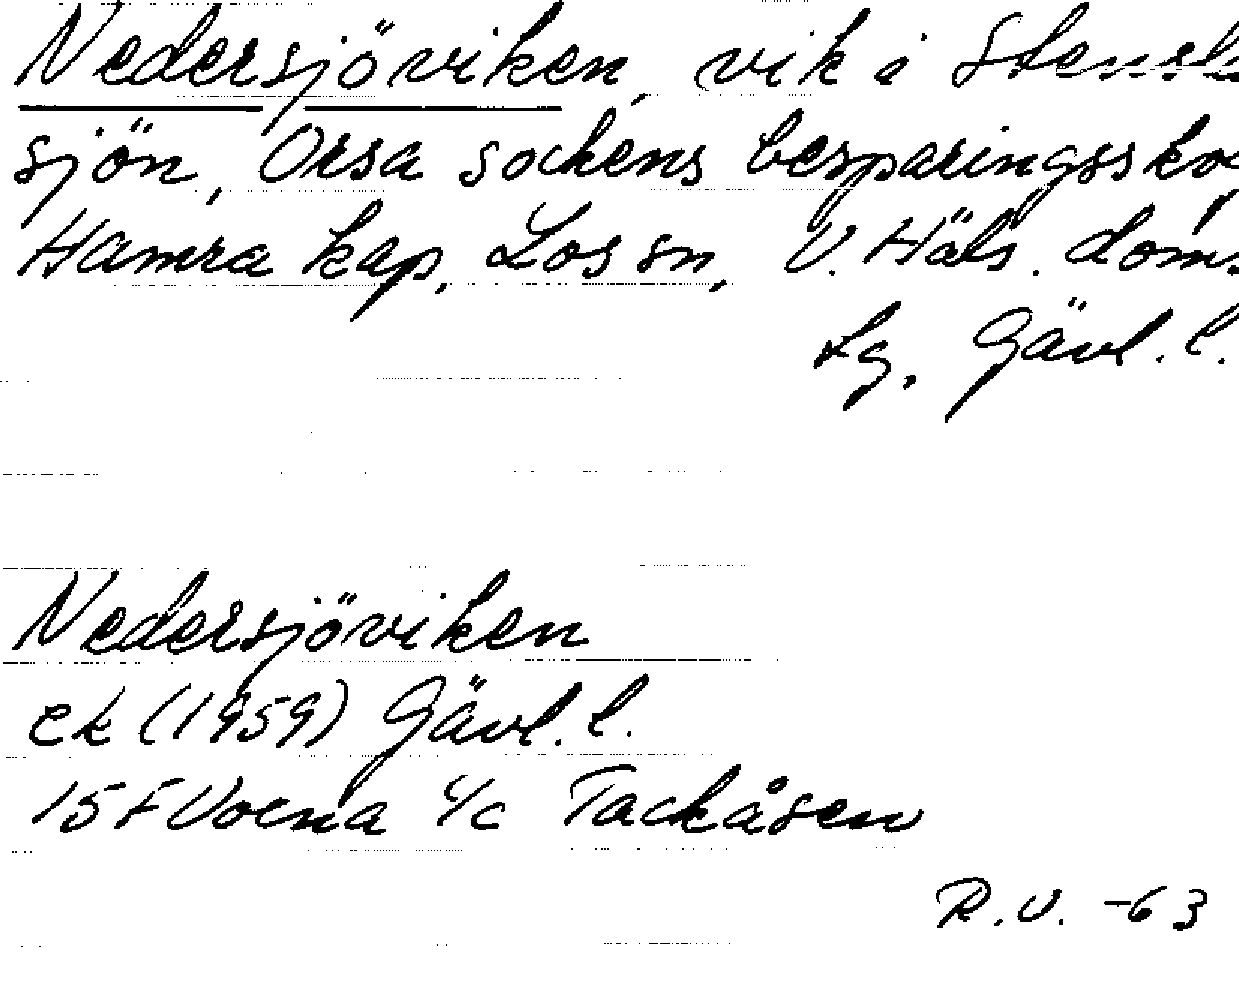 Nedersjöviken, vik i
sjön, Orsa sockens besparingssko
Hamra kap, Los sn, V. Häls. doms
Lg, Gävl. l.
Nedersjöviken
ek (1959) Gävl. l.
15F Voxna Tackåsen
R.V. -63